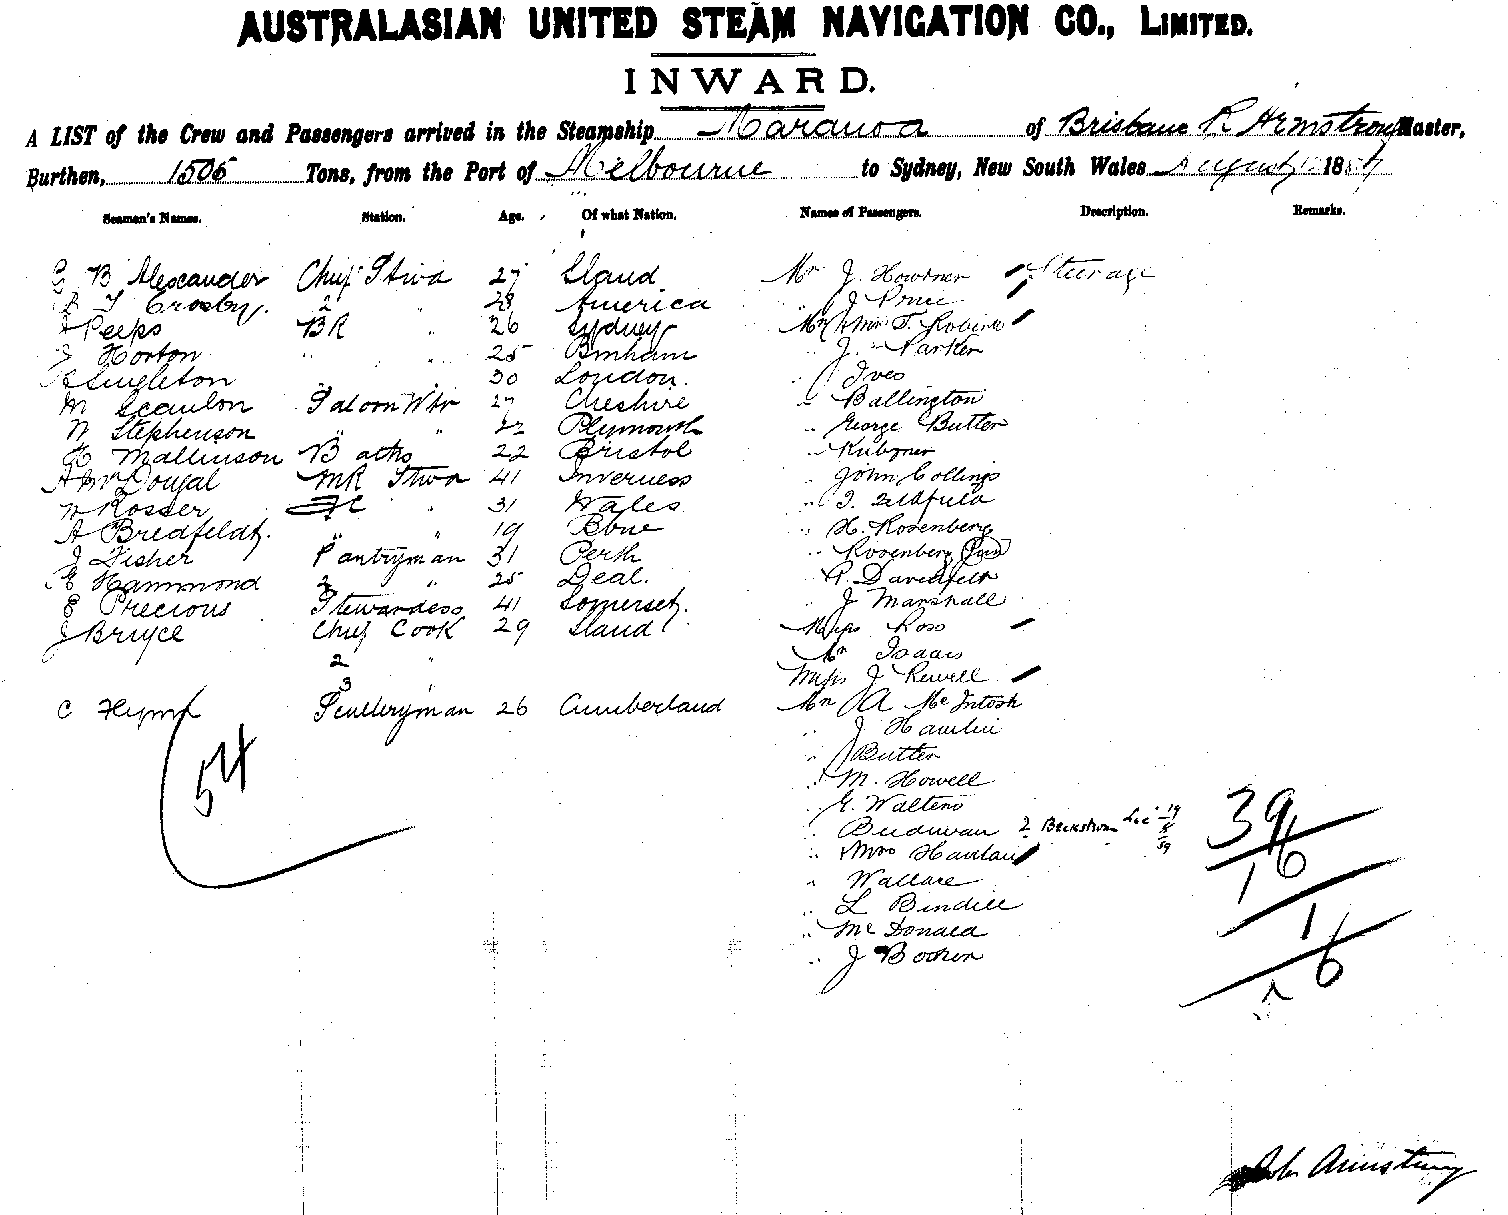 AUSTRALASIAN UNITED STEAM NAVIGATION CO., LIMITED.
INWARD.
A LIST of the Crew and Passengers arrived in the Steamship Maranoa of Brisbane R Armstrong Master,
Burthen, 1505 Tons, from the Port of Melbourne to Sydney, New South Wales August 188
Seamen's Names. Station. Age. Of what Nation. Names of Passengers. Description. Remarks.
G B Alexander Chief Stwd 27 Sland Mr J. Steerage
F Crosby. 2 " 28 America " J Prince
Peeps BR " 26 Sydney Mr & Mrs T. Robins
J Horton " " 25 Bmham " J. Parker
Singleton 30 London. " Ives
M Scanlon Saloon Wtr 27 Cheshire " Ballington
W Stephenson " " 22 Plymouth " George Butter
H Mallinson Baths 22 Bristol
A McDougal MR Stwd 41 Inverness " John Collings
W Rosser " 31 Wales " T.
A Bredfeldt. " " 19 Bone " H. Rosenberg
J Fisher Pantryman 31 Perth " Rosenberg
E Hammond 2 " 25 Deal.
E Precious Stewardess 41 Somerset. " J Marshall
J Bruyce Chief Cook 29 Sland Miss Ross
2 " Mr Isaacs
3 " Miss J Rewell
C Sculleryman 26 Cumberland Mr A McIntosh
54
" J
" Butter
" M. Howell
" E. Walters
" 2
" & Mrs
" Wallace
" L
" McDonald
" J
39
16
1
6
Rob Armstrong